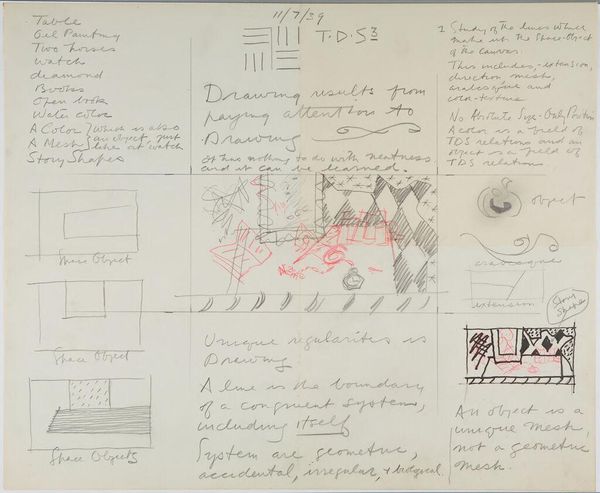 11/7/39
Table
Oil Painting
Two horses
Watch
diamond
Books
Open book
Water color
A Color } which is also
A Mesh } an object, just
like a watch
Story Shapes
T·D·S3
Drawing results from
paying attention to
Drawing
It has nothing to do with neatness
and it can be learned.
1 Study of the lines which
make up the Shape-Object
of the Canvas.
This includes, - extension,
direction, mesh,
arabesque and
color-texture.
No Absolute Size - Only Position
A color is a field of
TDS relations and an
object is a field of
TDS relations
Space Object
Space Object
Space Objects
No
Name
object
arabesque
extension
Story
Shape
Unique regularities is
Drawing
A line is the boundary
of a congruent system,
including itself
System are geometric,
accidental, irregular, + biological.
An object is a
unique mesh,
not a geometric
mesh.